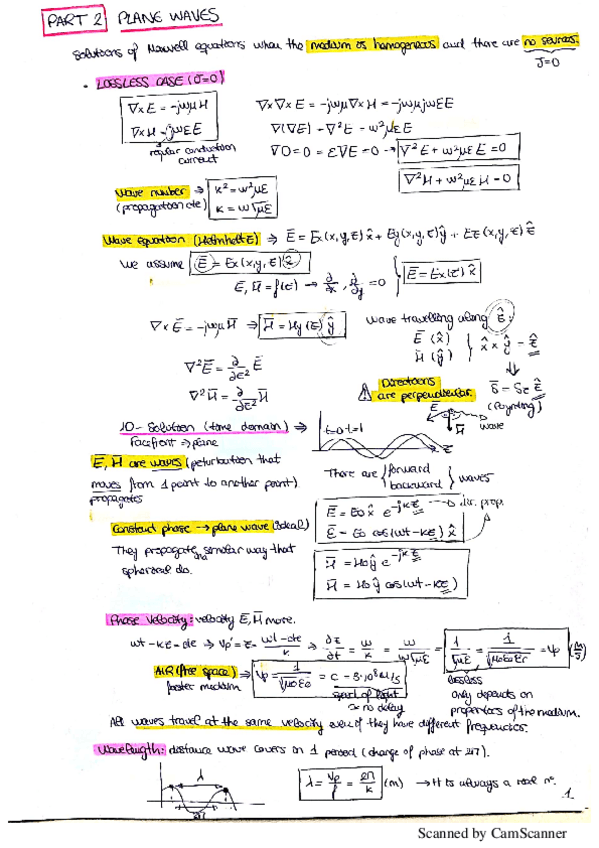 PART 2 PLANE WAVES
Solutions of Maxwell equations when the medium is homogeneous and there are no sources.
J=0
• LOSSLESS CASE (σ=0)
∇×E = -jωμH ∇×∇×E = -jωμ∇×H = -jωμjωεE
∇×H = jωεE ∇(∇E) - ∇²E - ω²μεE
regular conduction current
∇D=0 = ε∇E=0 → ∇²E + ω²μεE = 0
∇²H + ω²μεH = 0
Wave number ⇒ k² = ω²με
(propagation cte) k = ω√με
Wave equation (Helmholtz) ⇒ Ē = Ex(x,y,z)x̂ + Ey(x,y,z)ŷ + Ez(x,y,z)ẑ
We assume Ē = Ex(x,y,z)x̂
Ē, H̄ = f(z) → ∂/∂x, ∂/∂y = 0 } Ē = Ex(z)x̂
∇×Ē = -jωμH̄ ⇒ H̄ = Hy(z)ŷ wave travelling along ẑ.
Ē (x̂)
H̄ (ŷ) } x̂ × ŷ = ẑ
∇²Ē = ∂/∂z² Ē
∇²H̄ = ∂/∂z² H̄
⚠ Directions are perpendicular.
S̄ = Sz ẑ
(Poynting)
Ē H̄ wave
1D- Solution (time domain) ⇒ t=0 t=1 z
Facefront ⇒ plane
Ē, H̄ are waves (peturbation that
moves from 1 point to another point)
propagates
There are { forward backward } waves
Ē = E0 x̂ e^-jkz → dir. prop.
Ē = E0 cos(ωt-kz) x̂
Constant phase → plane wave (ideal)
They propagate in a similar way that
spherical do.
H̄ = H0 ŷ e^-jkz
H̄ = H0 ŷ cos(ωt-kz)
Phase velocity: velocity Ē, H̄ move.
ωt - kz = cte → Vp' = z = ωt-cte/k ⇒ ∂z/∂t = ω/k = ω/ω√με = 1/√με = 1/√μ0ε0εr = Vp (m/s)
AIR (free space) ⇒ Vp = 1/√μ0ε0 = c = 3·10⁸ m/s
faster medium
speed of light
≈ no delay
lossless
only depends on
properties of the medium.
All waves travel at the same velocity even if they have different frequencies.
Wavelength: distance wave covers on 1 period (change of phase at 2π).
λ
2π
λ = Vp/f = 2π/k (m) → It is always a real nº.
1
Scanned by CamScanner